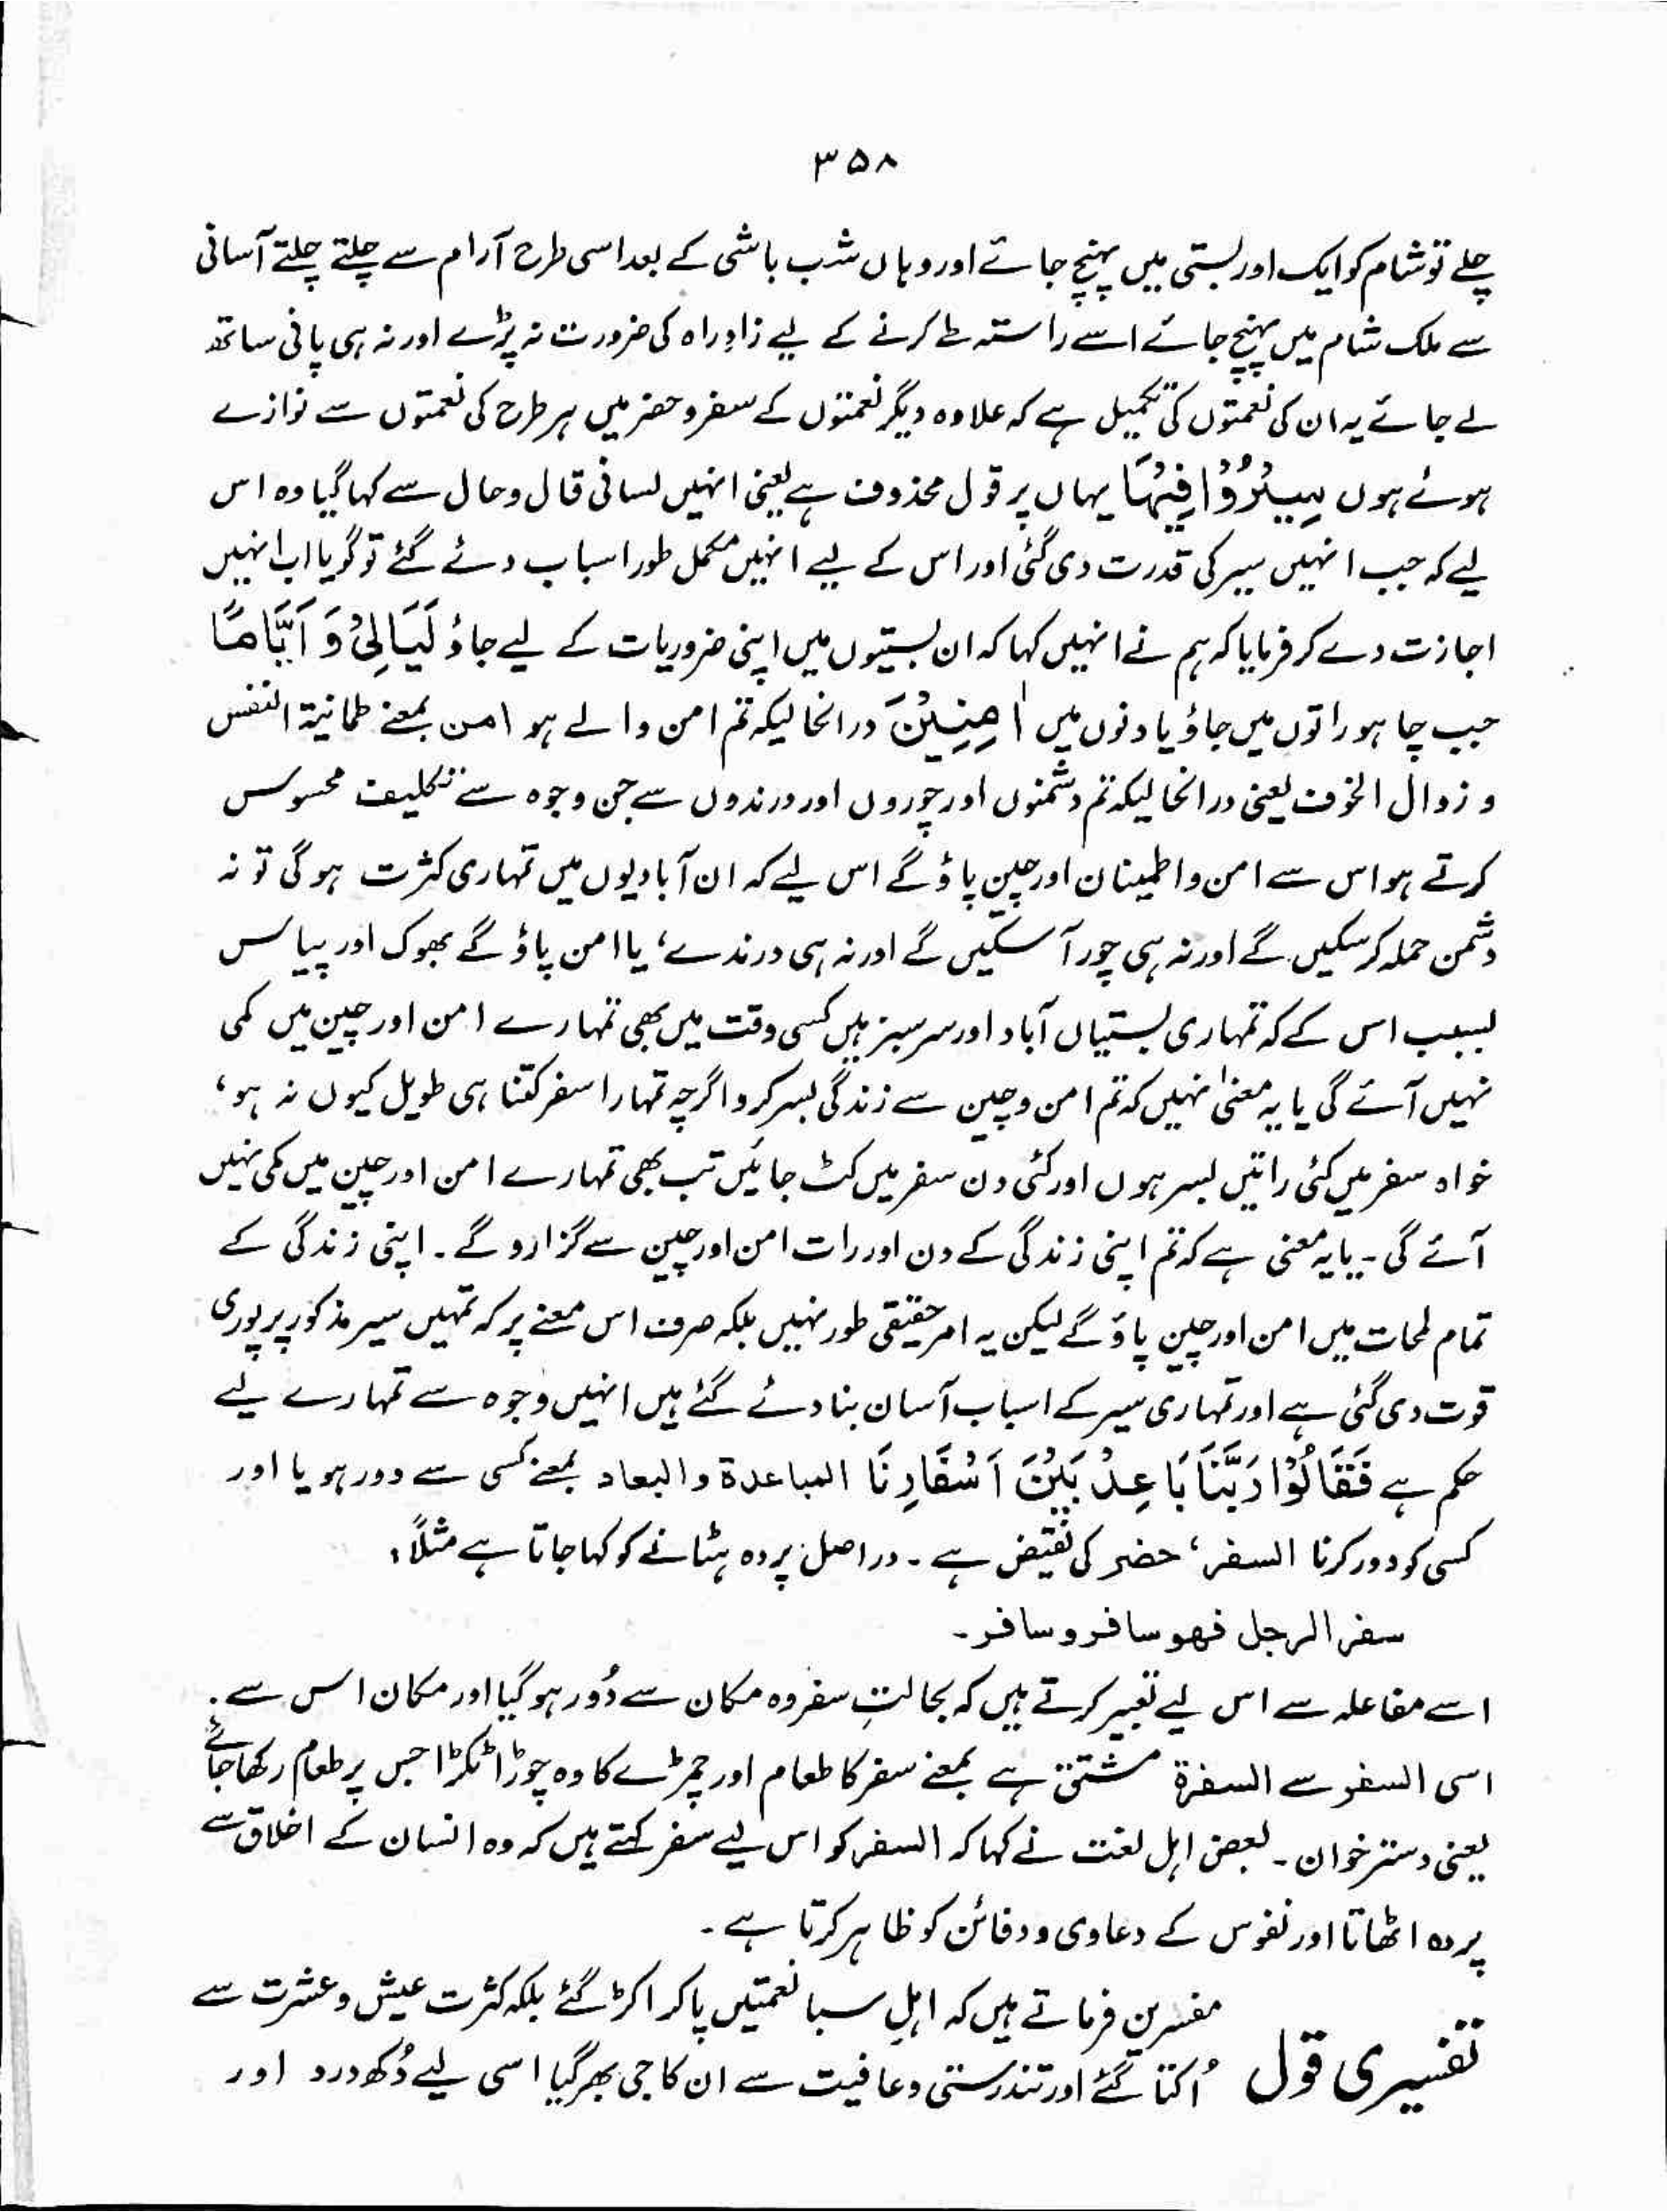 ۳۵۸
چلے تو شام کو ایک اور بستی میں پہنچ جائے اور وہاں شب باشی کے بعد اسی طرح آرام سے چلتے چلتے آسانی
سے ملک شام میں پہنچ جائے اسے راستہ طے کرنے کے لیے زادِ راہ کی ضرورت نہ پڑے اور نہ ہی پانی ساتھ
لے جائے یہ ان کی نعمتوں کی تکمیل ہے کہ علاوہ دیگر نعمتوں کے سفر و حضر میں ہر طرح کی نعمتوں سے نوازے
ہوئے ہوں سِيْرُوْا فِيْهَا یہاں پر قول محذوف ہے یعنی انہیں لسانی قال و حال سے کہا گیا وہ اس
لیے کہ جب انہیں سیر کی قدرت دی گئی اور اس کے لیے انہیں مکمل طور اسباب دئے گئے تو گویا اب انہیں
اجازت دے کر فرمایا کہ ہم نے انہیں کہا کہ ان بستیوں میں اپنی ضروریات کے لیے جاؤ لَيَالِيَ وَ اَيَّامًا
جب چاہو راتوں میں جاؤ یا دنوں میں اٰمِنِيْنَ درانحالیکہ تم امن والے ہو امن بمعنے طمانیۃ النفس
و زوال الخوف یعنی درانحالیکہ تم دشمنوں اور چوروں اور درندوں سے جن وجوہ سے تکلیف محسوس
کرتے ہو اس سے امن و اطمینان اور چین پاؤ گے اس لیے کہ ان آبادیوں میں تمہاری کثرت ہوگی تو نہ
دشمن حملہ کر سکیں گے اور نہ ہی چور آ سکیں گے اور نہ ہی درندے، یا امن پاؤ گے بھوک اور پیاس
بسبب اس کے کہ تمہاری بستیاں آباد اور سرسبز ہیں کسی وقت میں بھی تمہارے امن اور چین میں کمی
نہیں آئے گی یا یہ معنیٰ نہیں کہ تم امن و چین سے زندگی بسر کرو اگرچہ تمہارا سفر کتنا ہی طویل کیوں نہ ہو،
خواہ سفر میں کئی راتیں بسر ہوں اور کئی دن سفر میں کٹ جائیں تب بھی تمہارے امن اور چین میں کمی نہیں
آئے گی ۔ یا یہ معنی ہے کہ تم اپنی زندگی کے دن اور رات امن اور چین سے گزارو گے ۔ اپنی زندگی کے
تمام لمحات میں امن اور چین پاؤ گے لیکن یہ امر حقیقی طور نہیں بلکہ صرف اس معنے پر کہ تمہیں سیر مذکور پر پوری
قوت دی گئی ہے اور تمہاری سیر کے اسباب آسان بنا دئے گئے ہیں انہیں وجوہ سے تمہارے لیے
حکم ہے فَقَالُوْا رَبَّنَا بَاعِدْ بَيْنَ اَسْفَارِنَا المباعدۃ والبعاد بمعنے کسی سے دور ہو یا اور
کسی کو دور کرنا السفر، حضر کی نقیض ہے ۔ دراصل پردہ ہٹانے کو کہا جاتا ہے مثلاً:
سفر الرجل فهو سافر و سافر ۔
اسے مفاعلہ سے اس لیے تعبیر کرتے ہیں کہ بحالتِ سفر وہ مکان سے دُور ہو گیا اور مکان اس سے ۔
اسی السفر سے السفرۃ مشتق ہے بمعنے سفر کا طعام اور چمڑے کا وہ چوڑا ٹکڑا جس پر طعام رکھا جائے
یعنی دسترخوان ۔ بعض اہل لغت نے کہا کہ السفر کو اس لیے سفر کہتے ہیں کہ وہ انسان کے اخلاق سے
پردہ اٹھاتا اور نفوس کے دعاوی و دفائن کو ظاہر کرتا ہے ۔
تفسیری قول
مفسرین فرماتے ہیں کہ اہلِ سبا نعمتیں پا کر اکڑ گئے بلکہ کثرت عیش و عشرت سے
اُکتا گئے اور تندرستی و عافیت سے ان کا جی بھر گیا اسی لیے دُکھ درد اور